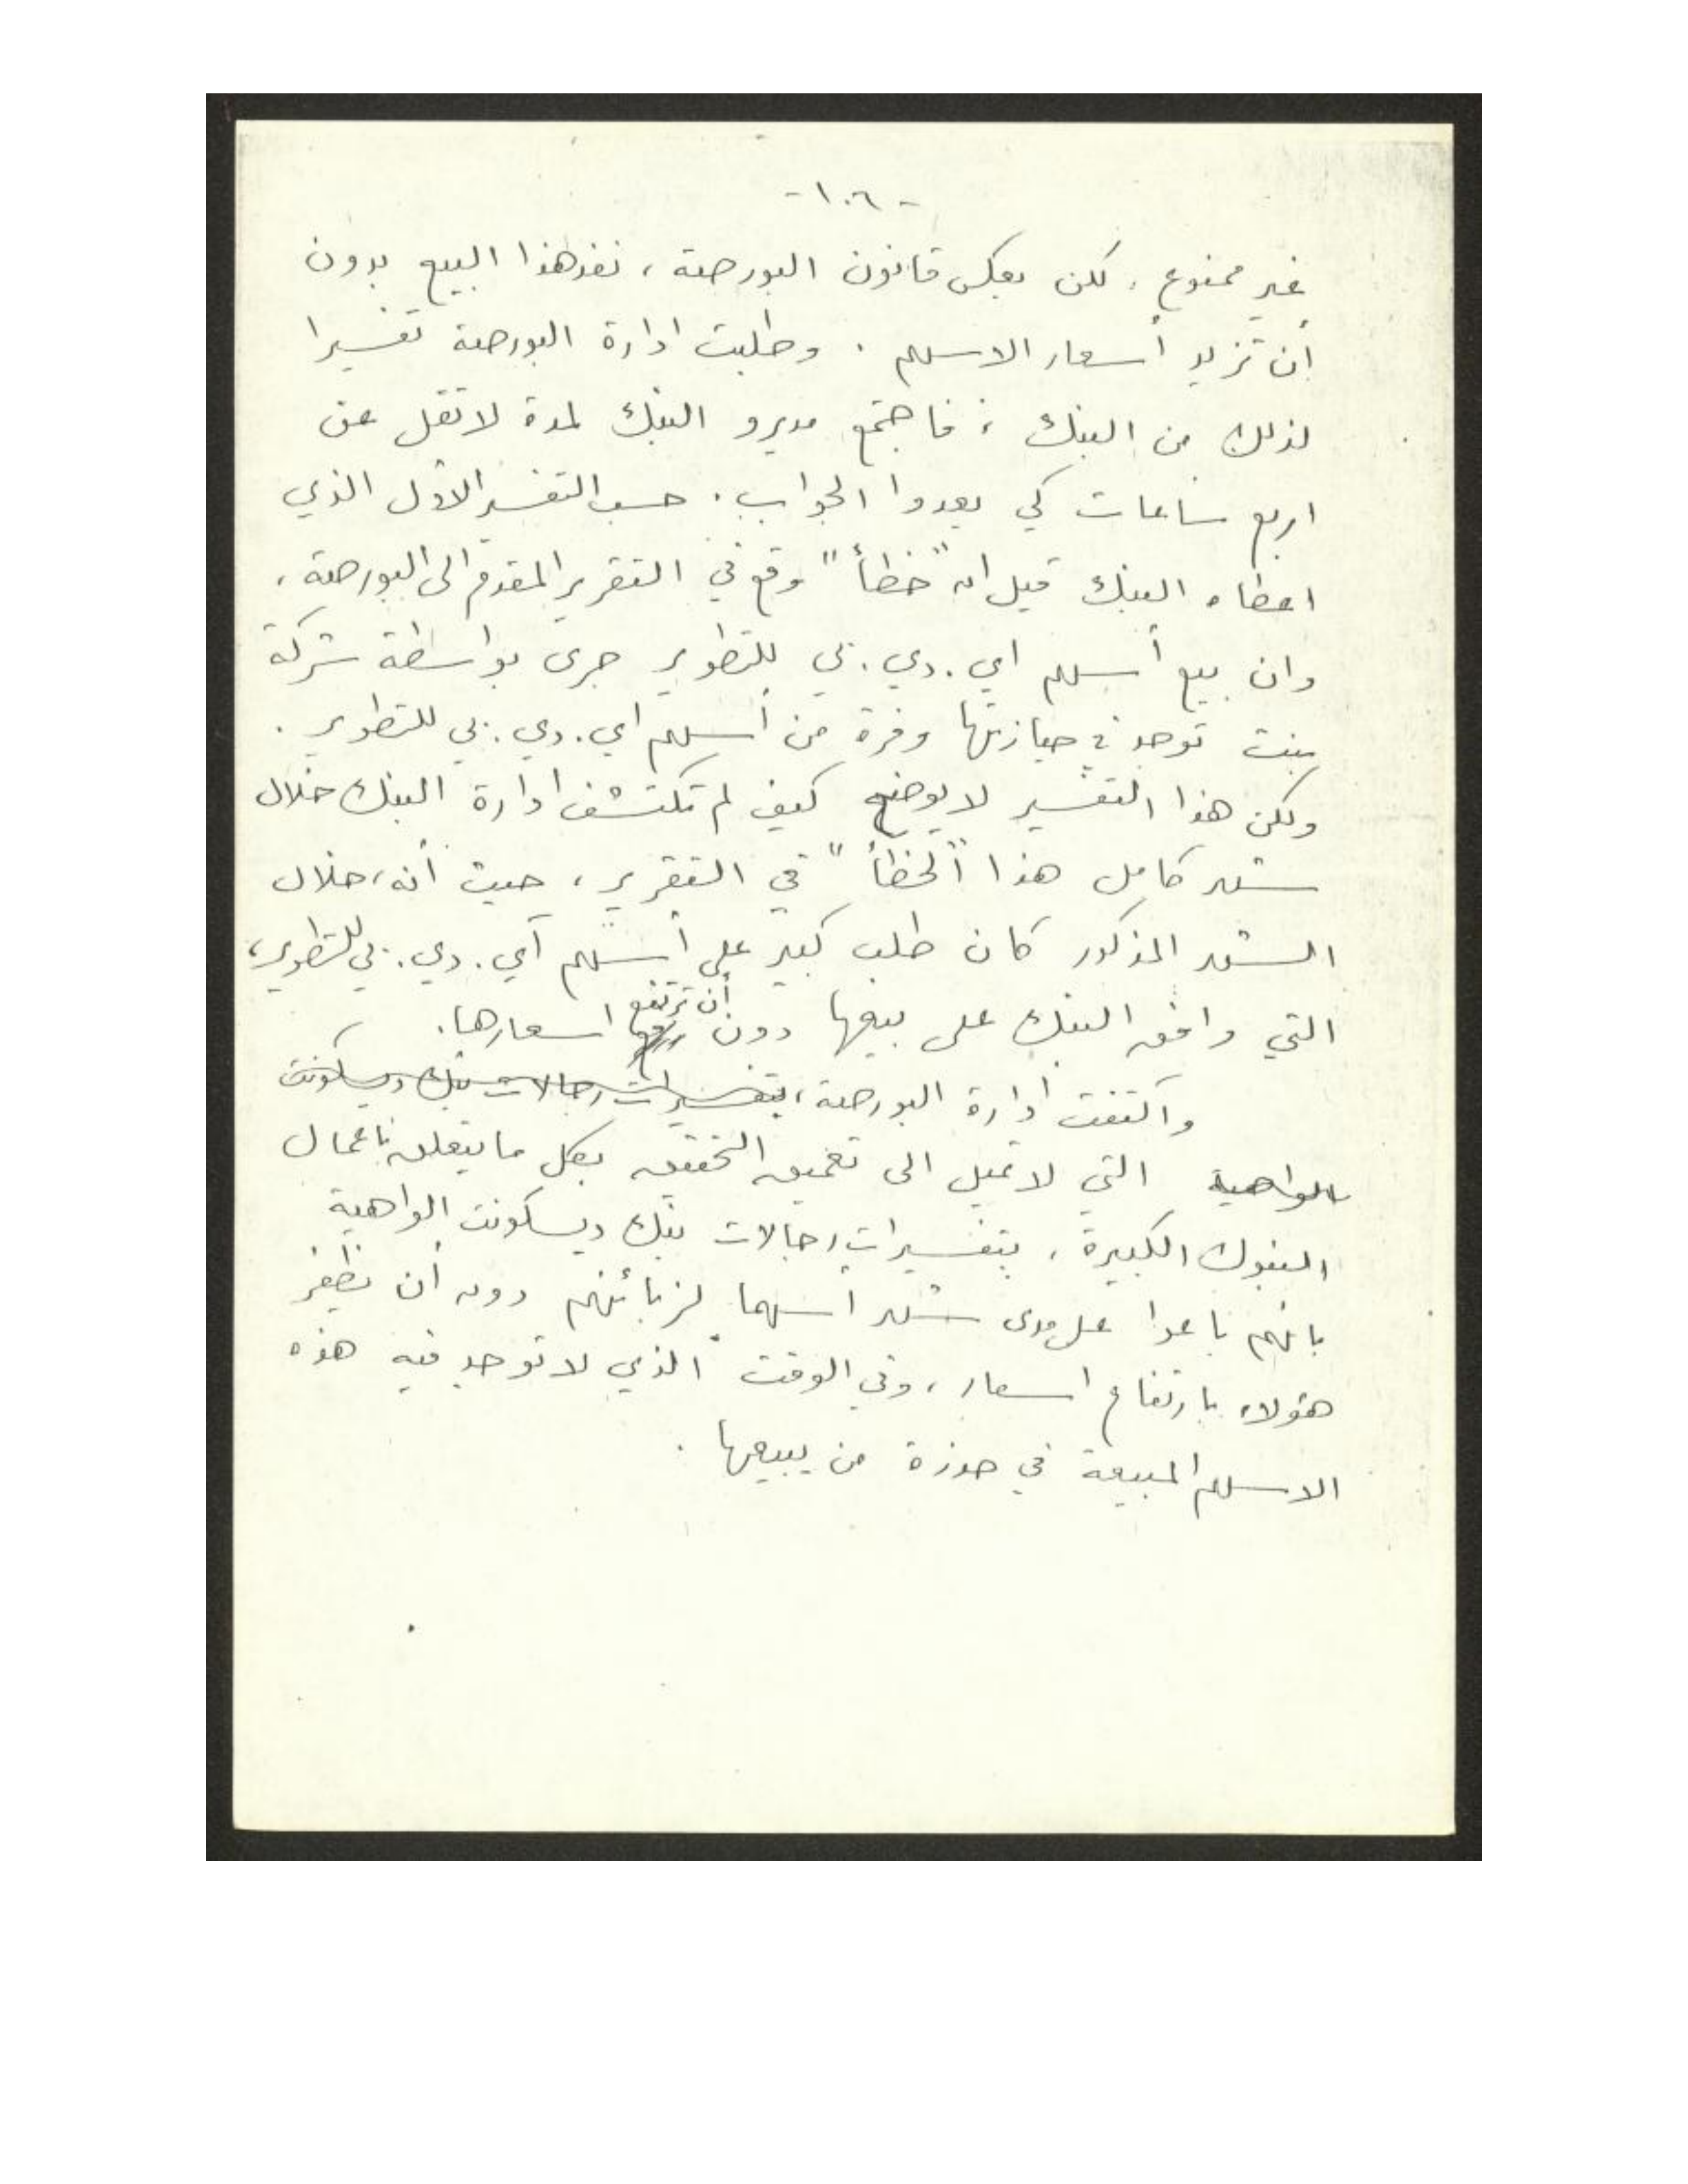 -١٠٦-
غير ممنوع، لكن بعكس قانون البورصة، نفذ هذا البيع بدون
أن تزيد أسعار الاسهم. وطلبت ادارة البورصة تفسيرا
لذلك من البنك، فاجتمع مديرو البنك لمدة لا تقل عن
اربع ساعات كي يعدوا الجواب. حسب التفسير الأول الذي
اعطاه البنك قيل ان "خطأ" وقع في التقرير المقدم الى البورصة،
وان بيع أسهم اي.دي.بي للتطوير جرى بواسطة شركة
بنت توجد في حيازتها وفرة من أسهم اي.دي.بي للتطوير.
ولكن هذا التفسير لا يوضح كيف لم تكتشف ادارة البنك خلال
شهر كامل هذا "الخطأ" في التقرير، حيث أنه، خلال
الشهر المذكور كان طلب كبير على أسهم آي.دي.بي للتطوير،
التي وافق البنك على بيعها دون أن ترتفع اسعارها.
واكتفت ادارة البورصة، بتفسيرات رجالات بنك ديسكونت
الواهية التي لا تميل الى تعميق التحقيق بكل ما يتعلق باعمال
البنوك الكبيرة، بتفسيرات رجالات بنك ديسكونت الواهية
بانهم باعوا على مدى شهر أسهما لزبائنهم دون أن يظفر
هؤلاء بارتفاع اسعار، وفي الوقت الذي لا توجد فيه هذه
الاسهم المبيعة في حوزة من يبيعها.